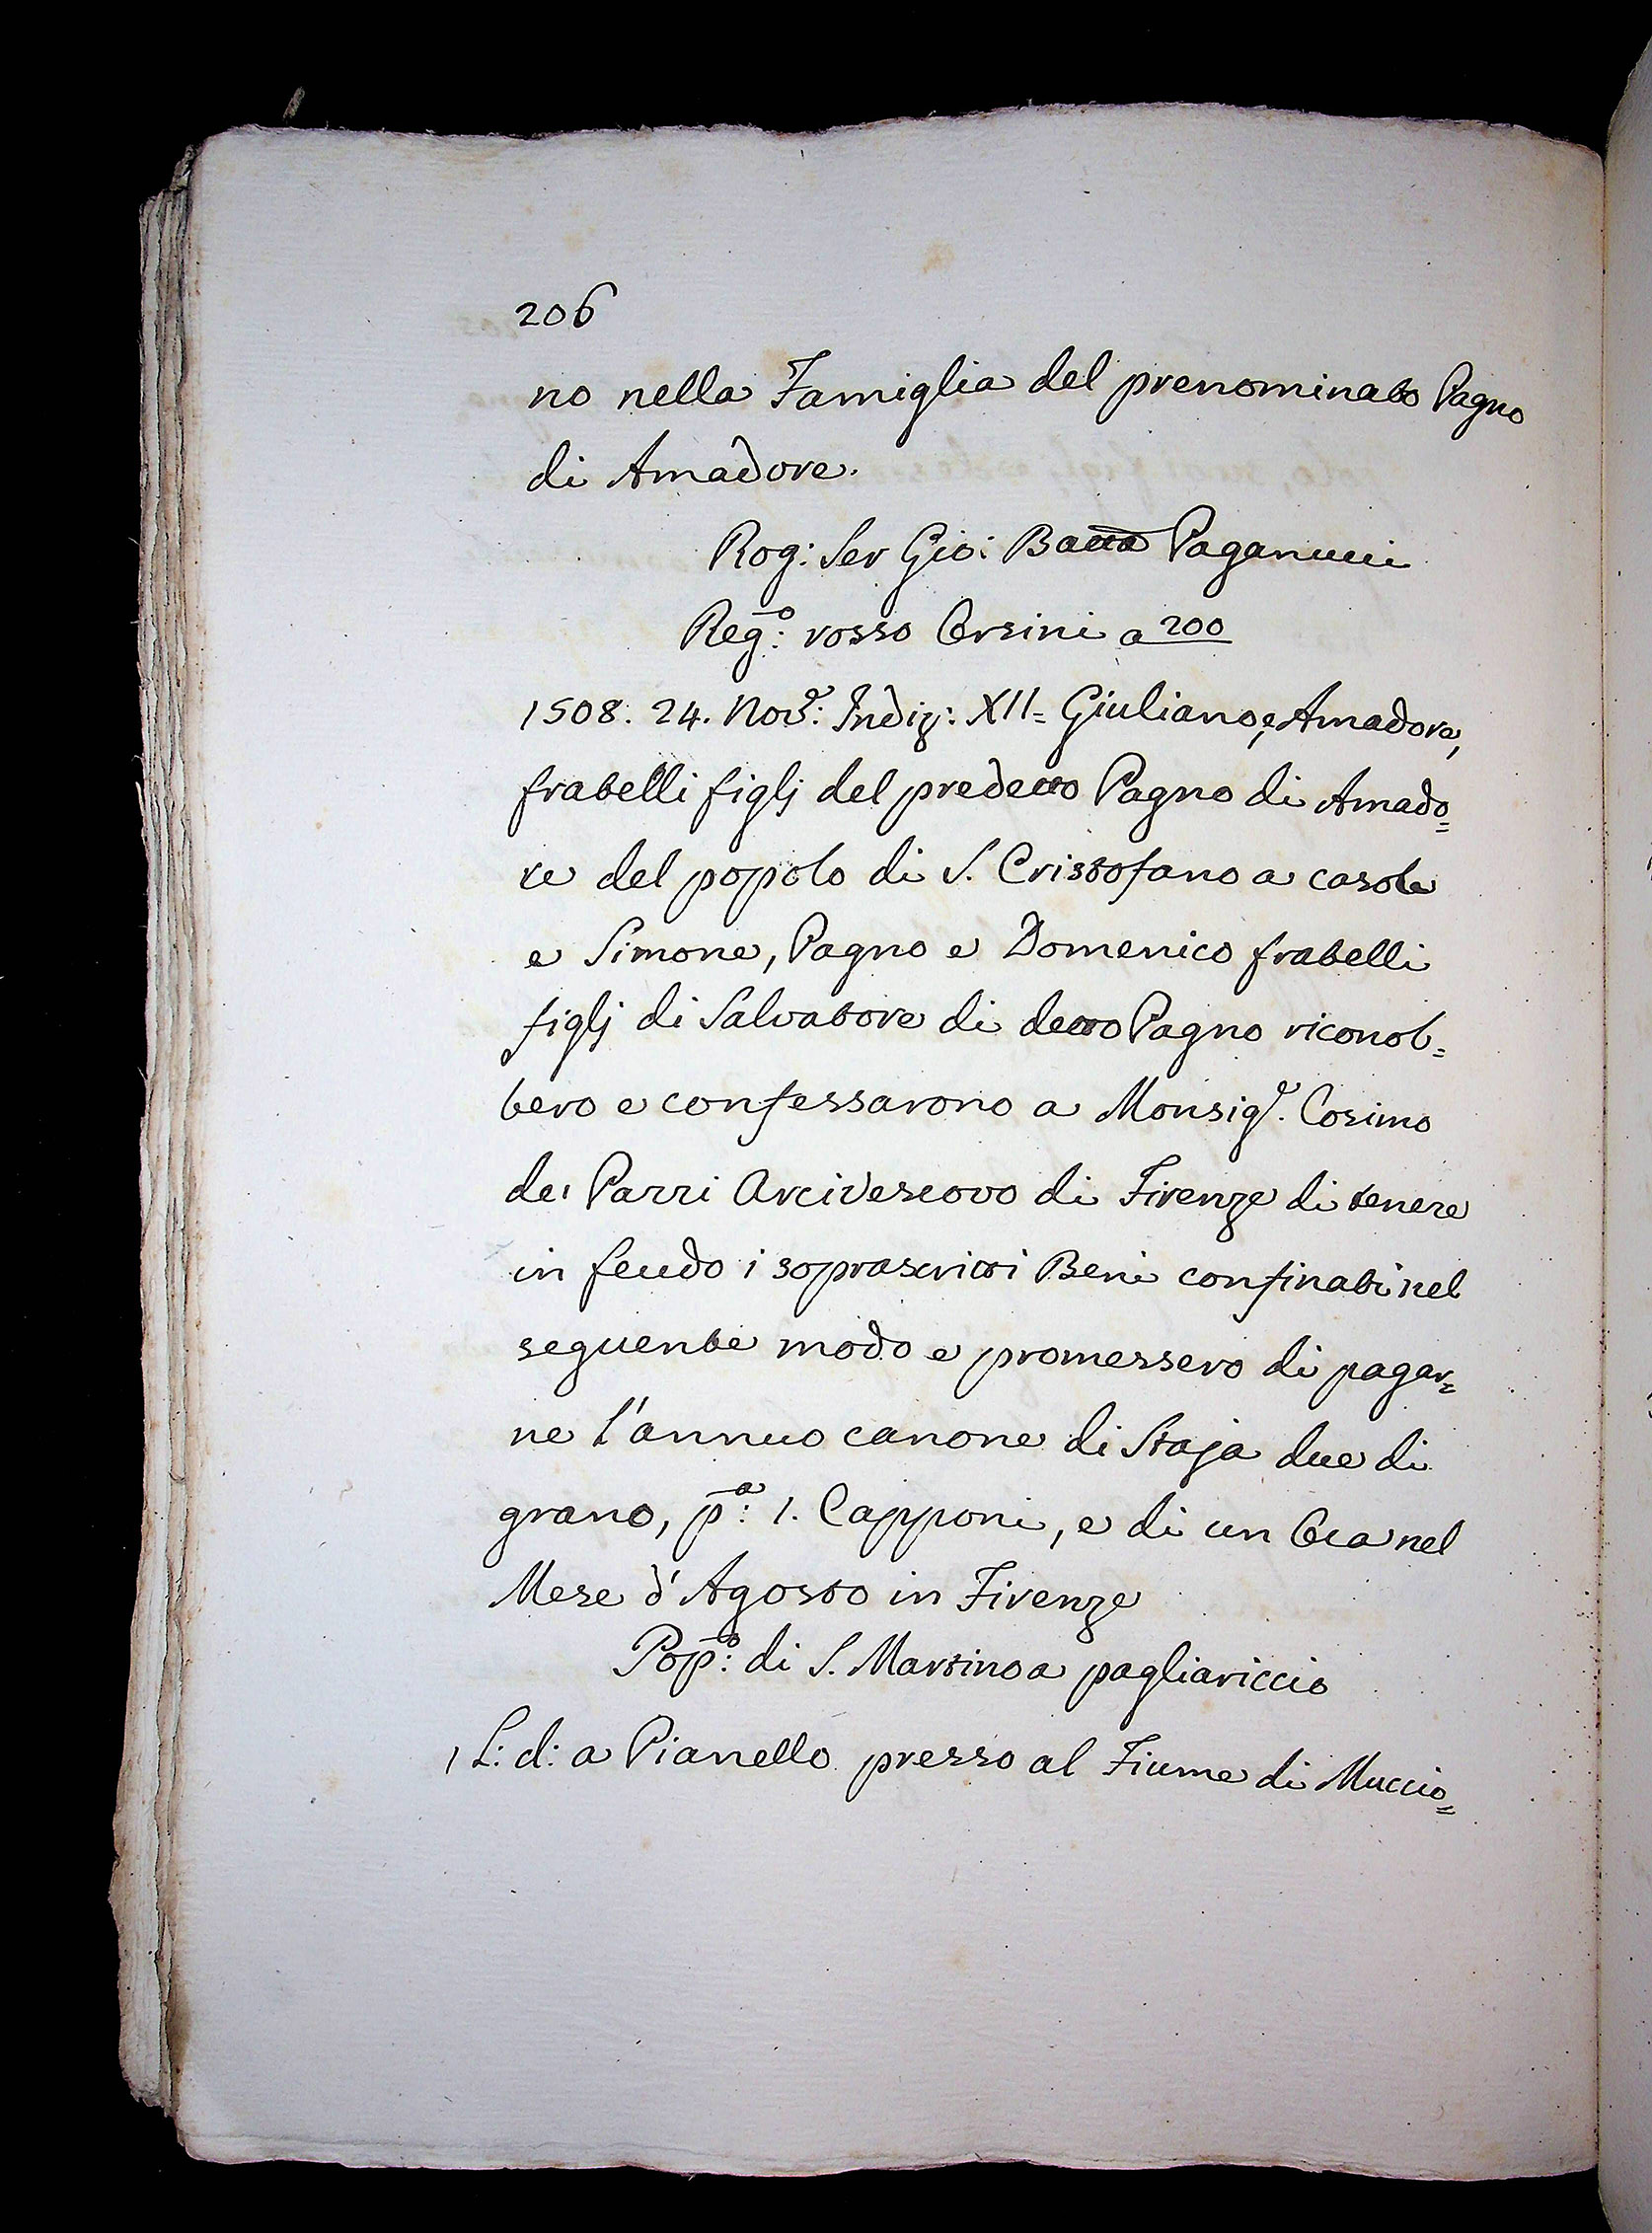 206
no nella Famiglia del prenominato Pagno
di Amadore.
Rog: Ser Gio: Batta Paganucci
Reg:º rosso Orsini a 200
1508. 24. Nov.e: Indiz: XII= Giuliano, e Amadore,
fratelli figlj del predetto Pagno di Amado=
re del popolo di S. Cristofano a casole
e Simone, Pagno e Domenico fratelli
figlj di Salvatore di detto Pagno riconob=
bero e confessarono a Monsig.e Cosimo
dei Pazzi Arcivescovo di Firenze di tenere
in feudo i soprascritti Beni confinati nel
seguente modo e promessero di pagar=
ne l'annuo canone di Staja due di
grano, p:ª 1. Capponi, e di un Oca nel
Mese d'Agosto in Firenze
Pop:º di S. Martino a pagliariccio
1 L: d: a Pianello presso al Fiume di Muccio=